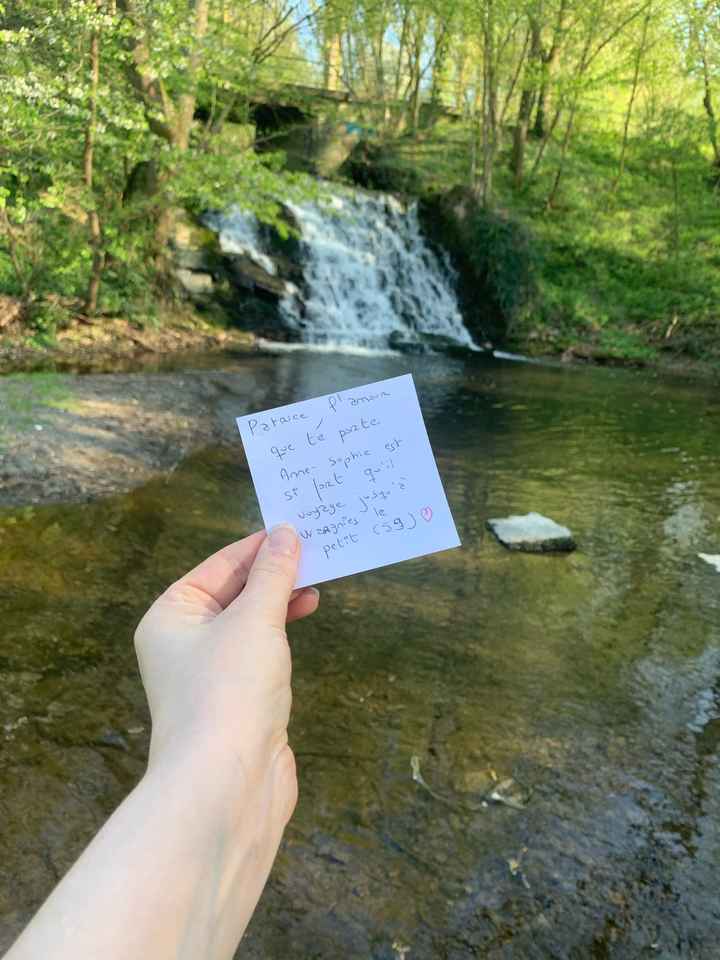 Patrice, l'amour
que te porte
Anne-Sophie est
si fort qu'il
voyage jusqu'à
Wargnies le
petit (59)